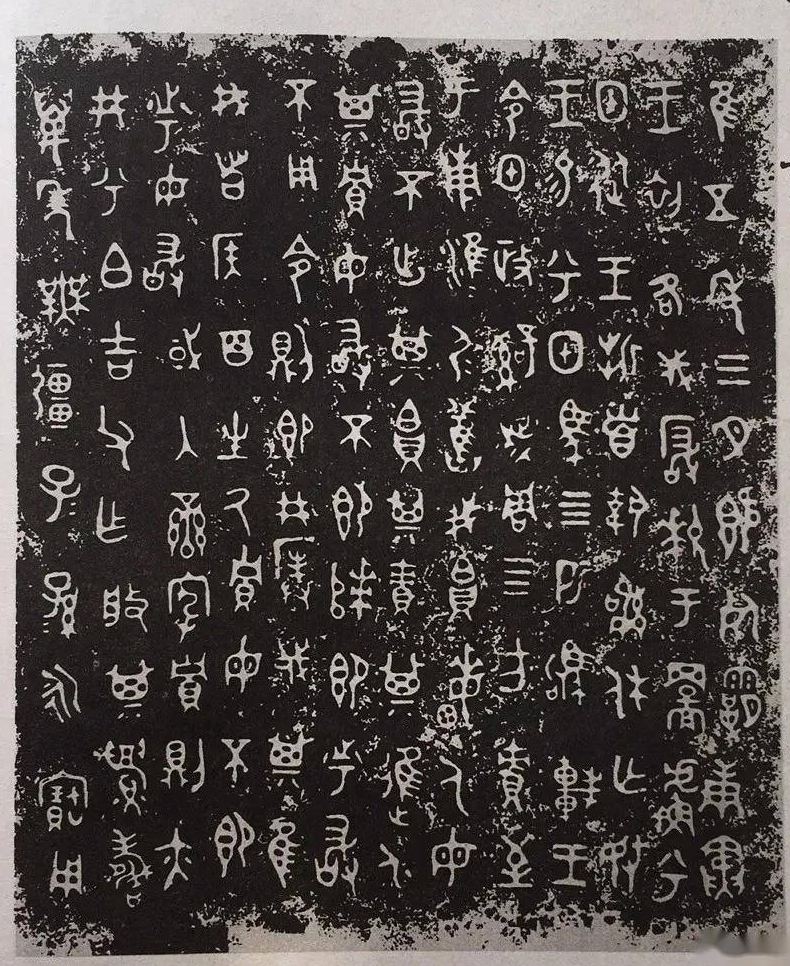 隹五年三月既死霸庚寅
王初各伐玁狁于䍙䖒兮
甲從王折首執訊休亡敃
王易兮甲馬四匹駒車王
令甲政𤔲成周四方責至
于南淮尸淮尸舊我帛畮人毋
敢不出其帛其責其進人
其貯毋敢不即次即市敢
不用令則即井撲伐其隹
我者侯百生氒貯毋不即
市毋敢或入蠻宄貯則亦
井兮白吉父乍般其眉壽
萬年無疆子子孫孫永寶用